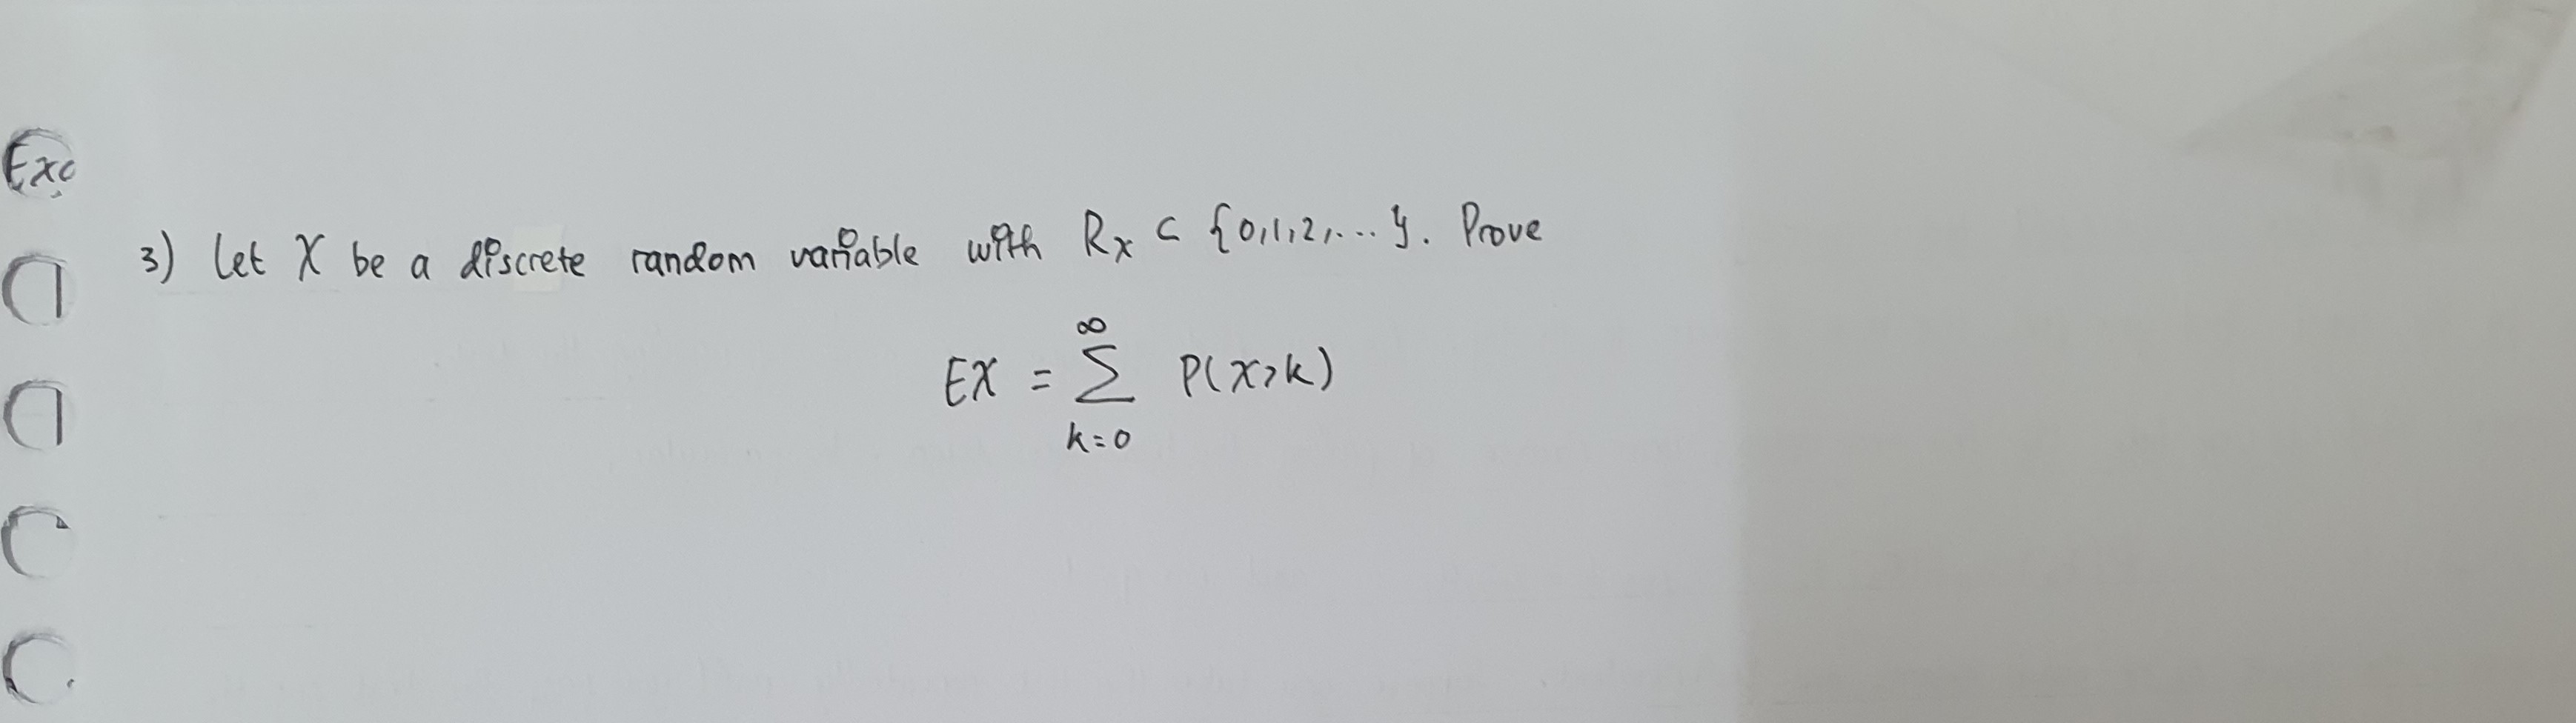 Exc
3) Let X be a discrete random variable with Rx ⊂ {0,1,2,...}. Prove
EX = ∞ Σ k=0 P(X>k)